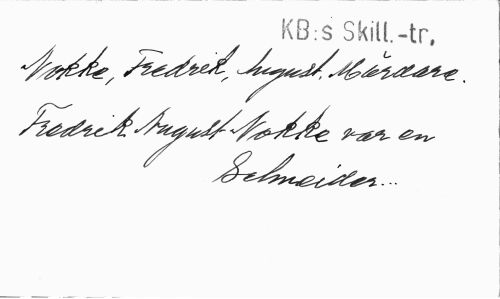 KB:s Skill.-tr.
Nokke, Fredrik, August. Mördare.
Fredrik August Nokke var en
Schneider...